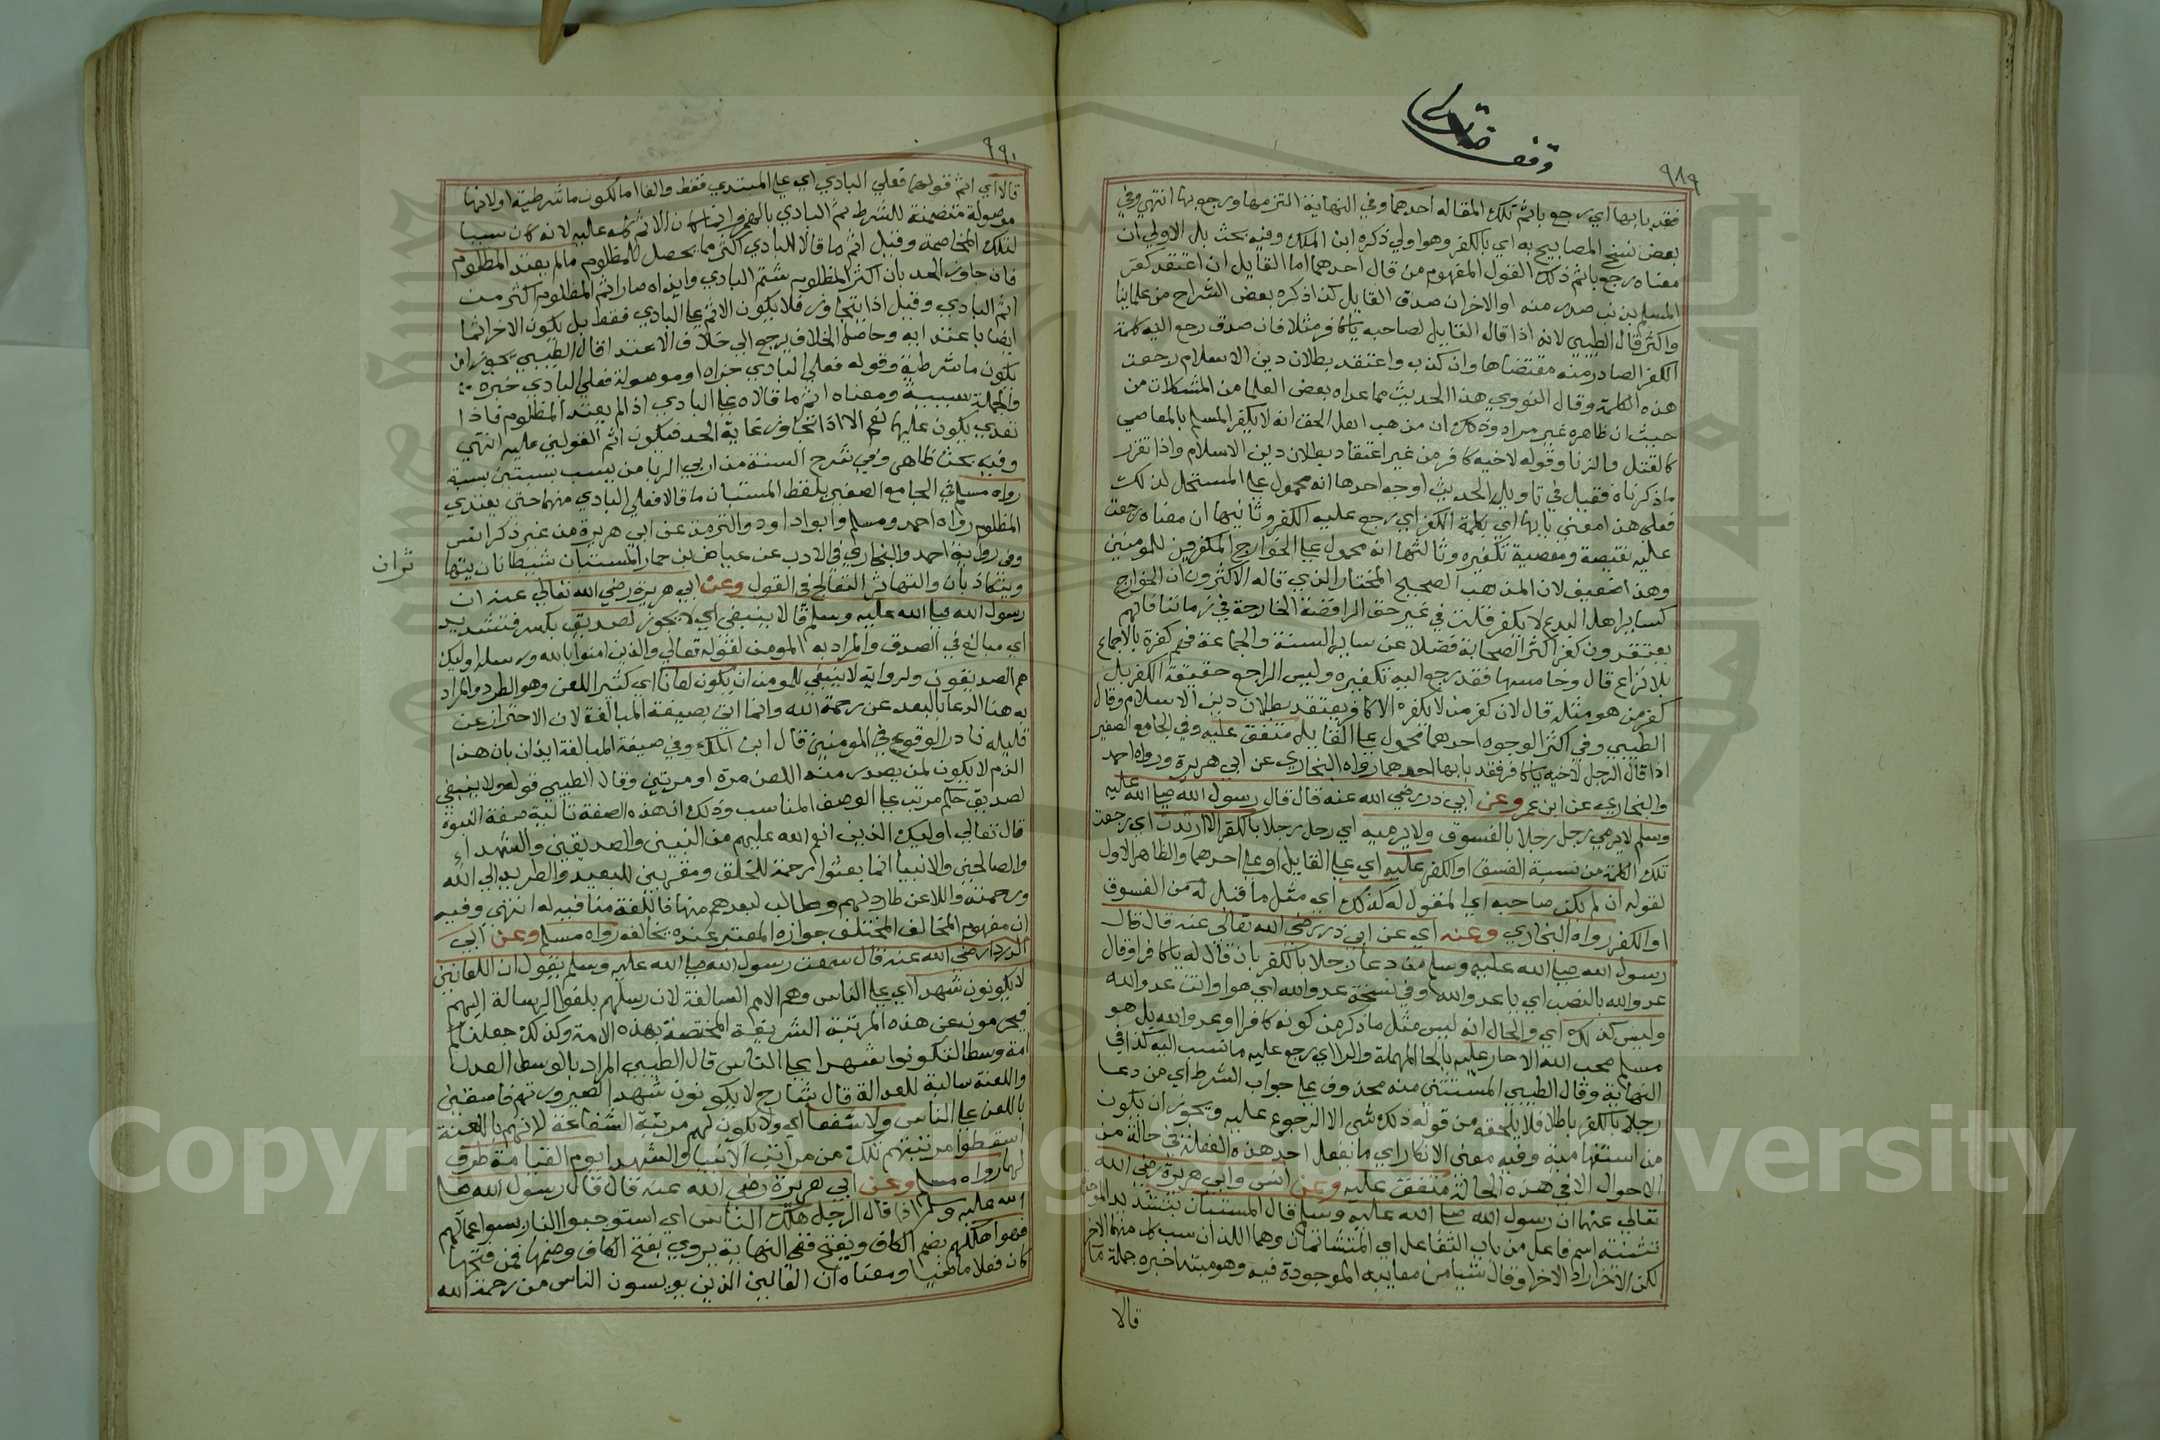 وقف لله تعالى
٩٨٩
فقد باء بها اي رجع باثم تلك المقالة احدهما وفي النهاية التزمها ورجع بها انتهي وفي
بعض نسخ المصابيح به اي بالكفر وهو اولي ذكره ابن الملك وفيه بحث بل الاولي ان
معناه رجع باثم ذلك القول المفهوم من قال احدهما اما القايل ان اعتقد كفر
المسلم بذنب صدر منه او الاخر ان صدق القايل كذا ذكره بعض الشراح من علماينا
واكثر قال الطيبي لانه اذا قال القايل لصاحبه يا كافر مثلا فان صدق رجع اليه كلمة
الكفر الصادر منه مقتضاها وان كذب واعتقد بطلان دين الاسلام رجعت
هذه الكلمة وقال النووي هذا الحديث مما عداه بعض العلما من المشكلات من
حيث ان ظاهره غير مراد وذلك ان مذهب اهل الحق انه لا يكفر المسلم بالمعاصي
كالقتل والزنا وقوله لاخيه كافر من غير اعتقاد بطلان دين الاسلام واذا تقرر
ماذكرناه فقيل في تاويل الحديث اوجه احدها انه محمول علي المستحل لذلك
فعلي هذا معني باء بها اي بكلمة الكفر اي رجع عليه الكفر وثانيها ان معناه رجعت
عليه نقيصة ومعصية تكفيره وثالثها انه محمول علي الخوارج المكفرين للمومنين
وهذا ضعيف لان المذهب الصحيح المختار الذي قاله الاكثرون ان الخوارج
كساير اهل البدع لا يكفر قلت في غير حق الرافضة الخارجة في زماننا فانهم
يعتقدون كفر اكثر الصحابة فضلا عن ساير السنة والجماعة فهم كفرة بالاجماع
بلا نزاع قال وخامسها فقد رجع اليه تكفيره وليس الراجع حقيقة الكفر بل
كفر من هو مثله قال لان كفر من لا يكفره الا كافر يعتقد بطلان دين الاسلام وقال
الطيبي وفي اكثر الوجوه احدهما محمول علي القايل متفق عليه وفي الجامع الصغير
اذا قال الرجل لاخيه يا كافر فقد باء بها احدهما رواه البخاري عن ابي هريرة ورواه احمد
والبخاري عن ابن عمر وعن ابي ذر رضي الله عنه قال قال رسول الله صلى الله عليه
وسلم لا يرمي رجل رجلا بالفسوق ولا يرميه اي رجل رجلا بالكفر الا ارتدت اي رجعت
تلك الكلمة من نسبة الفسق او الكفر عليه اي علي القايل او علي احدهما والظاهر الاول
لقوله ان لم يكن صاحبه اي المقول له كذلك اي مثل ما قيل له من الفسوق
او الكفر رواه البخاري وعنه اي عن ابي ذر رضي الله تعالى عنه قال قال
رسول الله صلى الله عليه وسلم من دعا رجلا بالكفر بان قال له يا كافر او قال
عدو الله بالنصب اي يا عدو الله وفي نسخة عدو الله اي هو او انت عدو الله
وليس كذلك اي والحال انه ليس مثل ما ذكر من كونه كافرا او عدو الله بل هو
مسلم محب الله الا حار عليه بالحا المهملة والرا اي رجع عليه ما نسب اليه كذا في
النهاية وقال الطيبي المستثني منه محذوف علي جواب الشرط اي من دعا
رجلا بالكفر باطلا فلا يلحقه من قوله ذلك شي الا الرجوع عليه ويجوز ان يكون
من استفهامية وفيه معني الانكار اي ما يفعل احد هذه الفعلة في حالة من
الاحوال الا في هذه الحالة متفق عليه وعن انس وابي هريرة رضي الله
تعالي عنهما ان رسول الله صلى الله عليه وسلم قال المستبان بتشديد الموحدة
تثنية اسم فاعل من باب التفاعل اي المتشاتمان وهما اللذان سب كل منهما الاخر
لكن الاخر اراد الاخر او قال شيا من معايبه الموجودة فيه وهو مبتدا خبره جملة ما
قالا
٩٩٠
قالا اي اثم قولهما فعلي البادي اي علي المبتدي فقط والفا اما لكون ما شرطية او لانها
موصولة متضمنة للشرط ثم البادي بالهمز وانما كان الاثم كله عليه لانه كان سببا
لتلك المخاصمة وقيل اثم ما قالا للبادي اكثر مما يحصل للمظلوم ما لم يعتد المظلوم
فان جاوز الحد بان اكثر المظلوم شتم البادي وايذاه صار اثم المظلوم اكثر من
اثم البادي وقيل اذا يتجاوز فلا يكون الاثم علي البادي فقط بل يكون الاخر اثما
ايضا باعتدايه وحاصل الخلاف يرجع الي خلاف الاعتدا قال الطيبي يجوز ان
يكون ما شرطية وقوله فعلي البادي جزاه او موصولة فعلي البادي خبره
والجملة سببية ومعناه اثم ما قالاه علي البادي اذا لم يعتد المظلوم فاذا
تعدي يكون عليهما نعم الا اذا تجاوز غاية الحد فيكون اثم القولين عليه انتهي
وفيه بحث ظاهر وفي شرح السنة من اربي الربا من يسب بسبتين بسبة
رواه مسلم في الجامع الصغير بلفظ المستبان ما قالا فعلي البادي منهما حتي يعتدي
المظلوم رواه احمد ومسلم وابو داود والترمذي عن ابي هريرة من غير ذكر انس
وفي رواية احمد والبخاري في الادب عن عياض بن حمار المستبان شيطانان يتها
تران
ويتكاذبان والتهاتر التقالح في القول وعن ابي هريرة رضي الله تعالي عنه ان
رسول الله صلى الله عليه وسلم قال لا ينبغي اي لا يجوز لصديق بكسر فتشديد
اي مبالغ في الصدق والمراد به المومن لقوله تعالي والذين امنوا بالله ورسله اوليك
هم الصديقون ولرواية لا ينبغي للمومن ان يكون لعانا اي كثير اللعن وهو الطرد والمراد
به هنا الدعا بالبعد عن رحمة الله وانما اتي بصيغة المبالغة لان الاحتراز عن
قليله نادر الوقوع في المومنين قال ابن الملك وفي صيغة المبالغة ايذان بان هذا
الذم لا يكون لمن يصدر منه اللعن مرة او مرتين وقال الطيبي قوله ولا ينبغي
لصديق حكم مرتب علي الوصف المناسب وذلك ان هذه الصفة تالية صفة النبوة
قال تعالي اوليك الذين انعم الله عليهم من النبيين والصديقين والشهداء
والصالحين والانبيا انما بعثوا رحمة للخلق ومقربين للبعيد والطريد الي الله
ورحمته واللاعن طارد لهم وطالب لبعدهم منها فاللعنة منافيه له انتهي وفيه
ان مفهوم المخالف المختلف جوازه المعتبر عنده يخالفه رواه مسلم وعن ابي
الدرداء رضي الله عنه قال سمعت رسول الله صلى الله عليه وسلم يقول ان اللعانين
لا يكونون شهدا اي علي الناس وهم الامم السالفة لان رسلهم بلغوا الرسالة اليهم
فيحرمون عن هذه المرتبة الشريفة المختصة بهذه الامة وكذلك جعلناكم
امة وسطا لتكونوا شهداء علي الناس قال الطيبي المراد بالوسط العدل
واللعنة سالبة للعدالة قال شارح لا يكونون شهدا لصيرورتهم فاسقين
باللعن علي الناس ولا شفعا اي ولا يكون لهم مرتبة الشفاعة لانهم باللعنة
اسقطوا مرتبتهم تلك من مراتب الانبيا والشهدا يوم القيامة ظرف
لهما رواه مسلم وعن ابي هريرة رضي الله عنه قال قال رسول الله صلى
الله عليه وسلم اذا قال الرجل هلك الناس اي استوجبوا النار بسوء اعمالهم
فهو اهلكهم بضم الكاف ويفتح ففي النهاية يروي بفتح الكاف وضمها فمن فتحها
كان فعلا ماضيا ومعناه ان الغالين الذين يويسون الناس من رحمة الله
Copyright © King Saud University